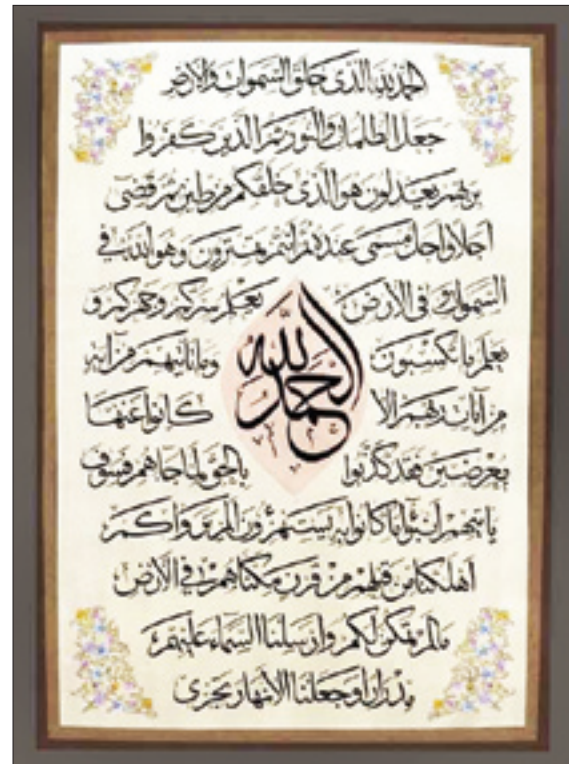 الحمد لله الذی خلق السموات والأرض
جعل الظلمات والنور ثم الذین کفروا
بربهم یعدلون هو الذی خلقکم من طین ثم قضی
اجلا واجل مسمی عنده ثم أنتم تمترون وهو الله فی
السموات و فی الارض یعلم سرکم وجهرکم و
یعلم ما تکسبون وما تاتیهم من آیه
الحمد لله
من آیات ربهم الا کانوا عنها
معرضین فقد کذبوا بالحق لما جاهم فسوف
یاتیهم انبؤا ما کانوا به یستهزؤن الم یروا کم
اهلکنا من قبلهم من قرن مکناهم فی الأرض
مالم نمکن لکم وارسلنا السماء علیهم
مدرارا وجعلنا الأنهار تجری